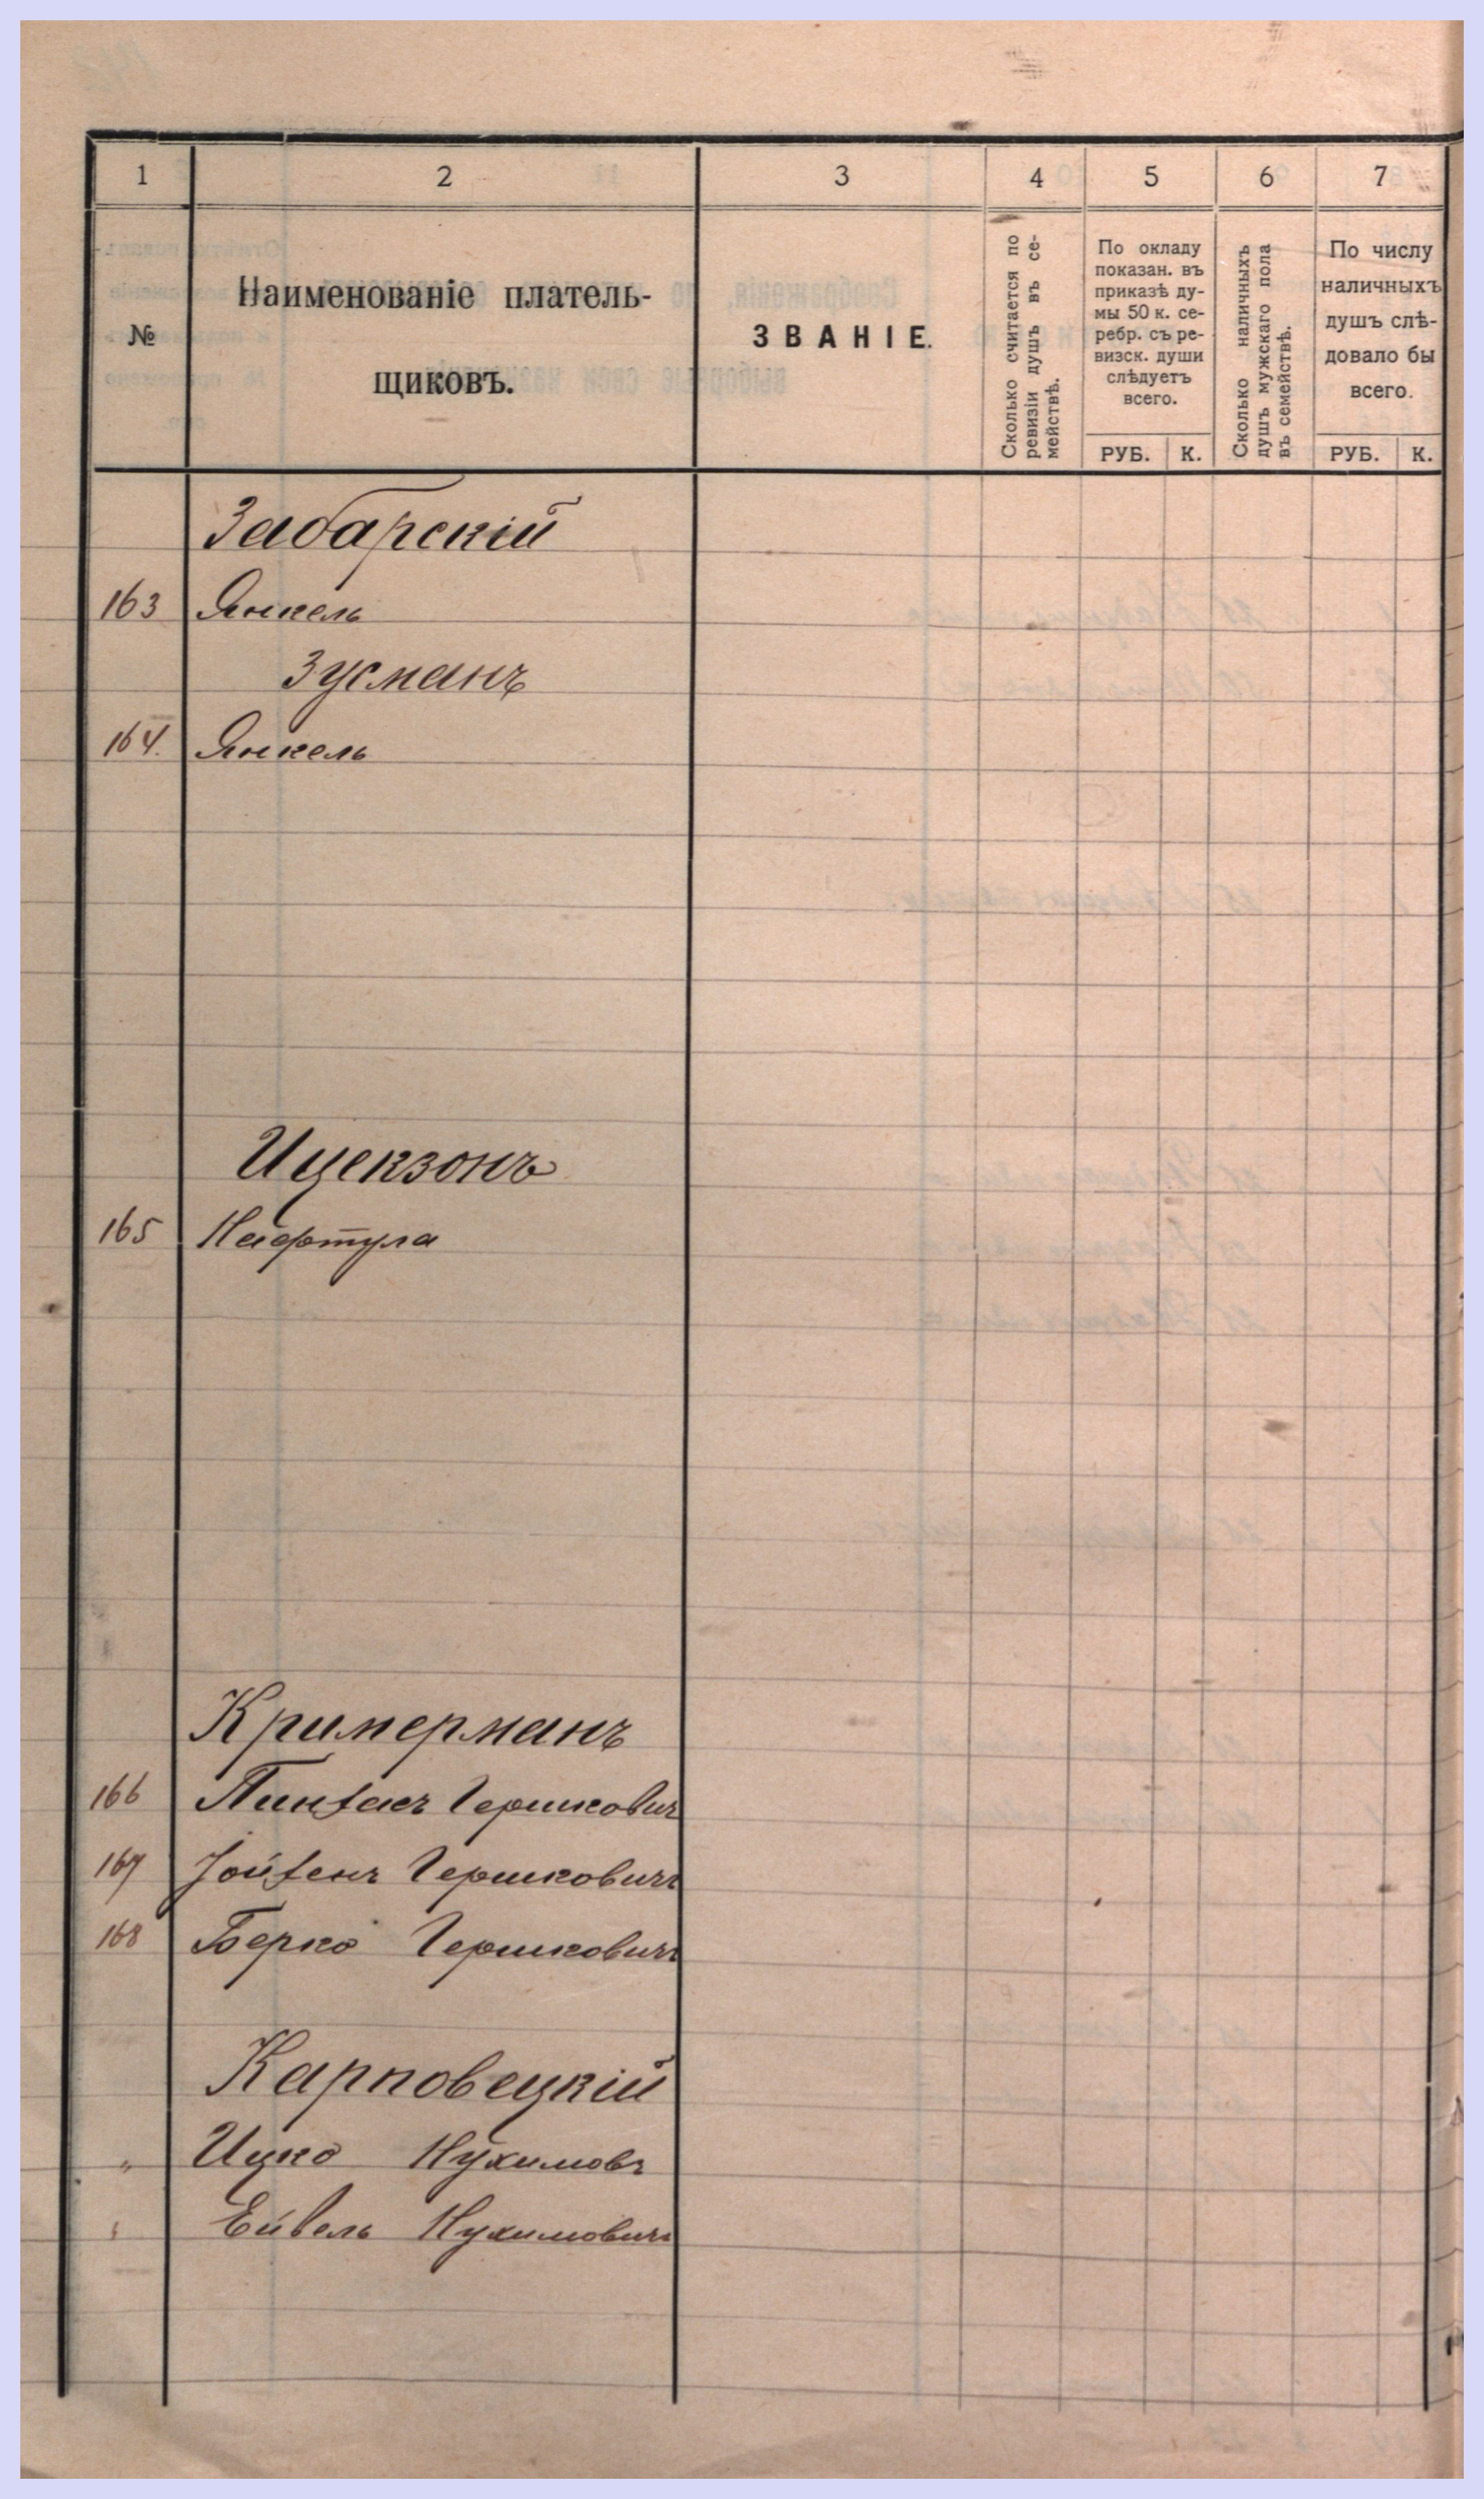 1 2 3 4 5 6 7
№
Наименованіе платель-
щиковъ.
ЗВАНІЕ.
Сколько считается по
ревизіи душъ въ се-
мействѣ.
По окладу
показан. въ
приказѣ ду-
мы 50 к. се-
ребр. съ ре-
визск. души
слѣдуетъ
всего.
РУБ. К.
Сколько наличныхъ
душъ мужскаго пола
въ семействѣ.
По числу
наличныхъ
душъ слѣ-
довало бы
всего.
РУБ. К.
Забарскій
163 Янкель
Зусманъ
164. Янкель
Ицекзонъ
165 Нафтула
Кримерманъ
166 Пинхасъ Гершкович
167 Іойхенъ Гершковичъ
168 Берко Гершковичъ
Карповецкій
„ Ицко Нухимовъ
„ Ейвель Нухимовичъ